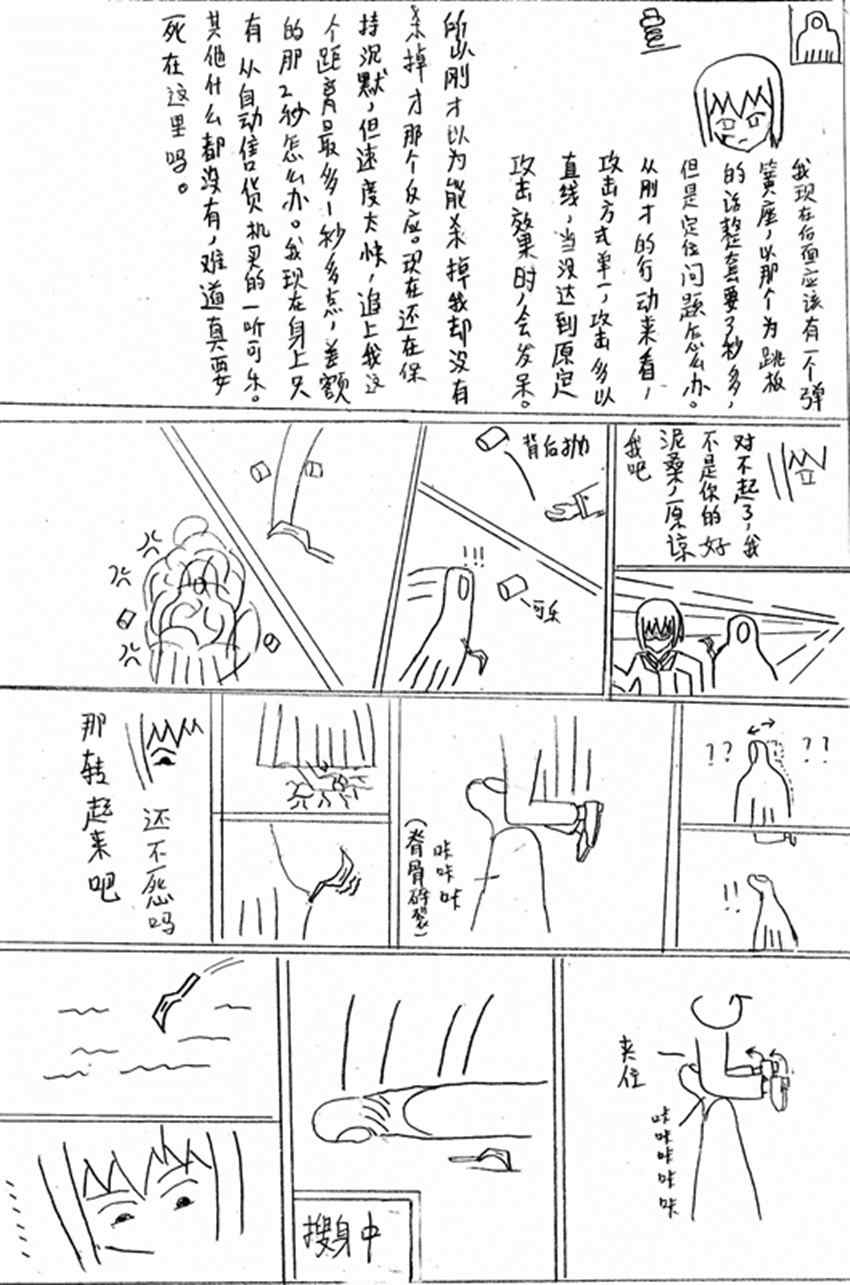 我现在后面应该有一个弹
簧座，以那个为跳板
的话整套要3秒多，
但是定位问题怎么办。
从刚才的行动来看，
攻击方式单一，攻击多以
直线，当没达到原定
攻击效果时，会发呆。
所以刚才以为能杀掉我却没有
杀掉才那个反应。现在还在保
持沉默，但速度太快，追上我这
个距离最多1秒多点，差额
的那2秒怎么办。我现在身上只
有从自动售货机买的一听可乐。
其他什么都没有，难道真要
死在这里吗。
对不起了，我
不是你的好
泥桑，原谅
我吧
背后抛
!!!
可乐
?? ??
!!
咔咔咔
（脊骨碎裂）
还不死吗
那转起来吧
夹住
咔咔咔咔咔
搜身中